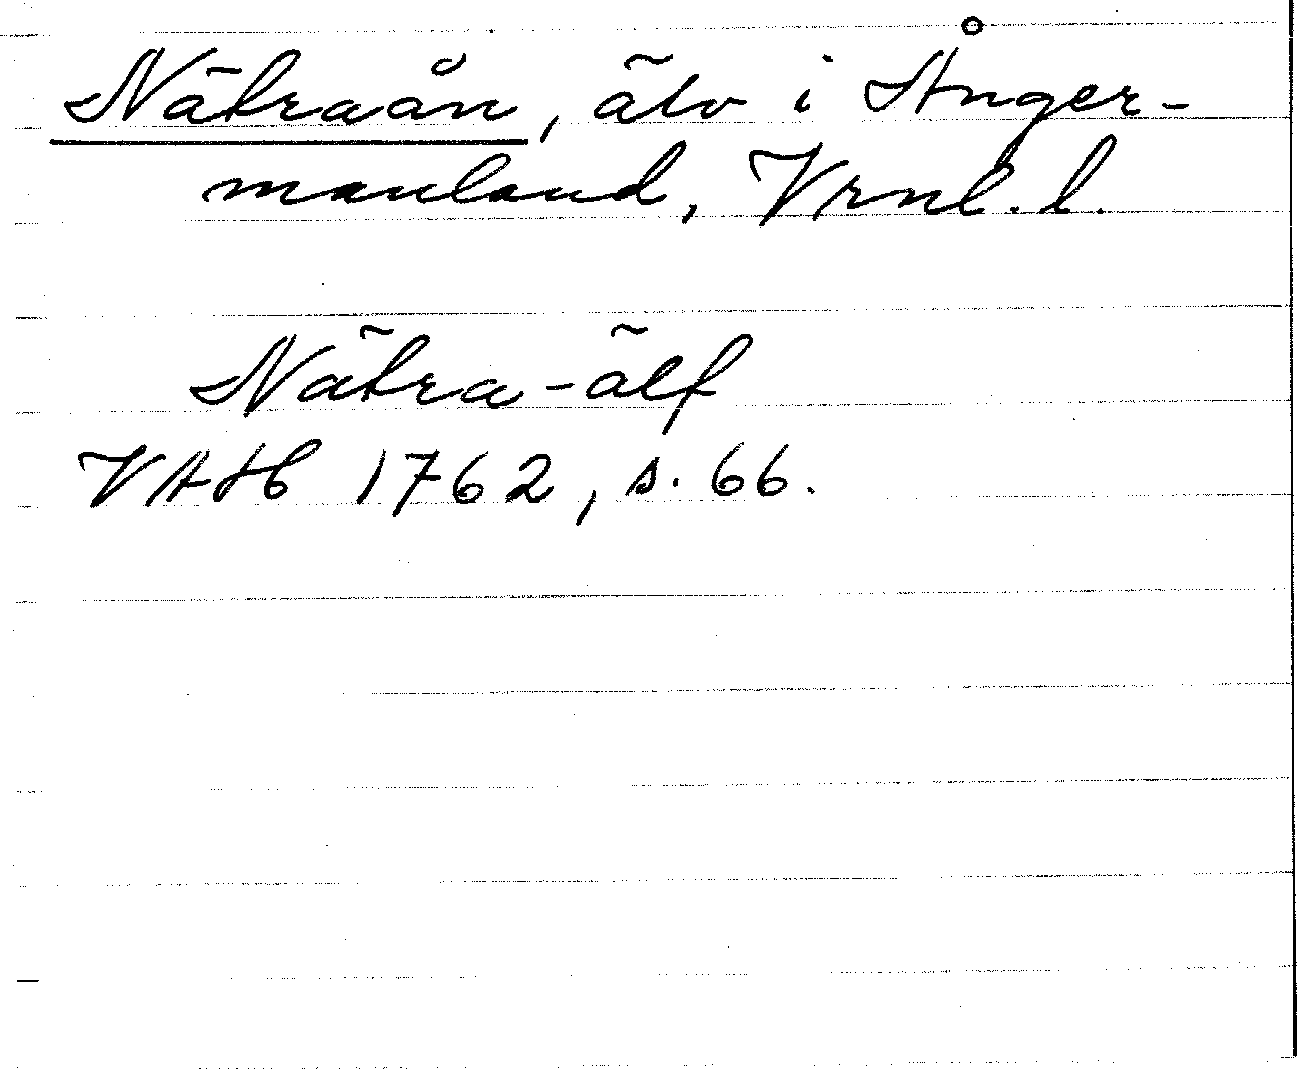 Nätraån, älv i Ånger-
manland, Vrnl. l.
Nätra-älf
VAH 1762, s. 66.